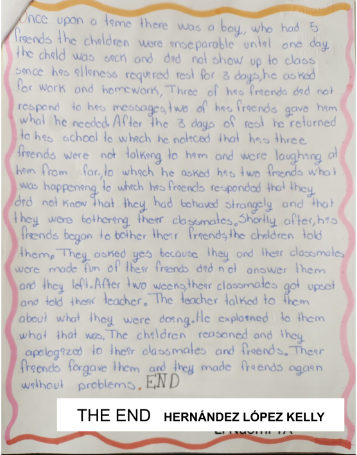 Once upon a time there was a boy, who had 5
friends the children were inseparable until one day
the child was sick and did not show up to class
since his illeness required rest for 3 days, he asked
for work and homework, Three of his friends did not
respond to his messages, two of his friends gave him
what he needed. After the 3 days of rest he returned
to his school to which he noticed that his three
friends were not talking to him and were laughing at
him from far, to which he asked his two friends what
was happening, to which his friends responded that they
did not know that they had behaved strangely and that
they were bothering their classmates. Shortly after, his
friends began to bother their friends, the children told
them, They asked yes because they and their classmates
were made fun of their friends did not answer them
and they left. After two weeks, their classmates got upset
and told their teacher. The teacher talked to them
about what they were doing. He explained to them
what that was. The children reasoned and they
apologized to their classmates and friends. Their
friends forgave them and they made friends again
without problems. END
THE END HERNÁNDEZ LÓPEZ KELLY